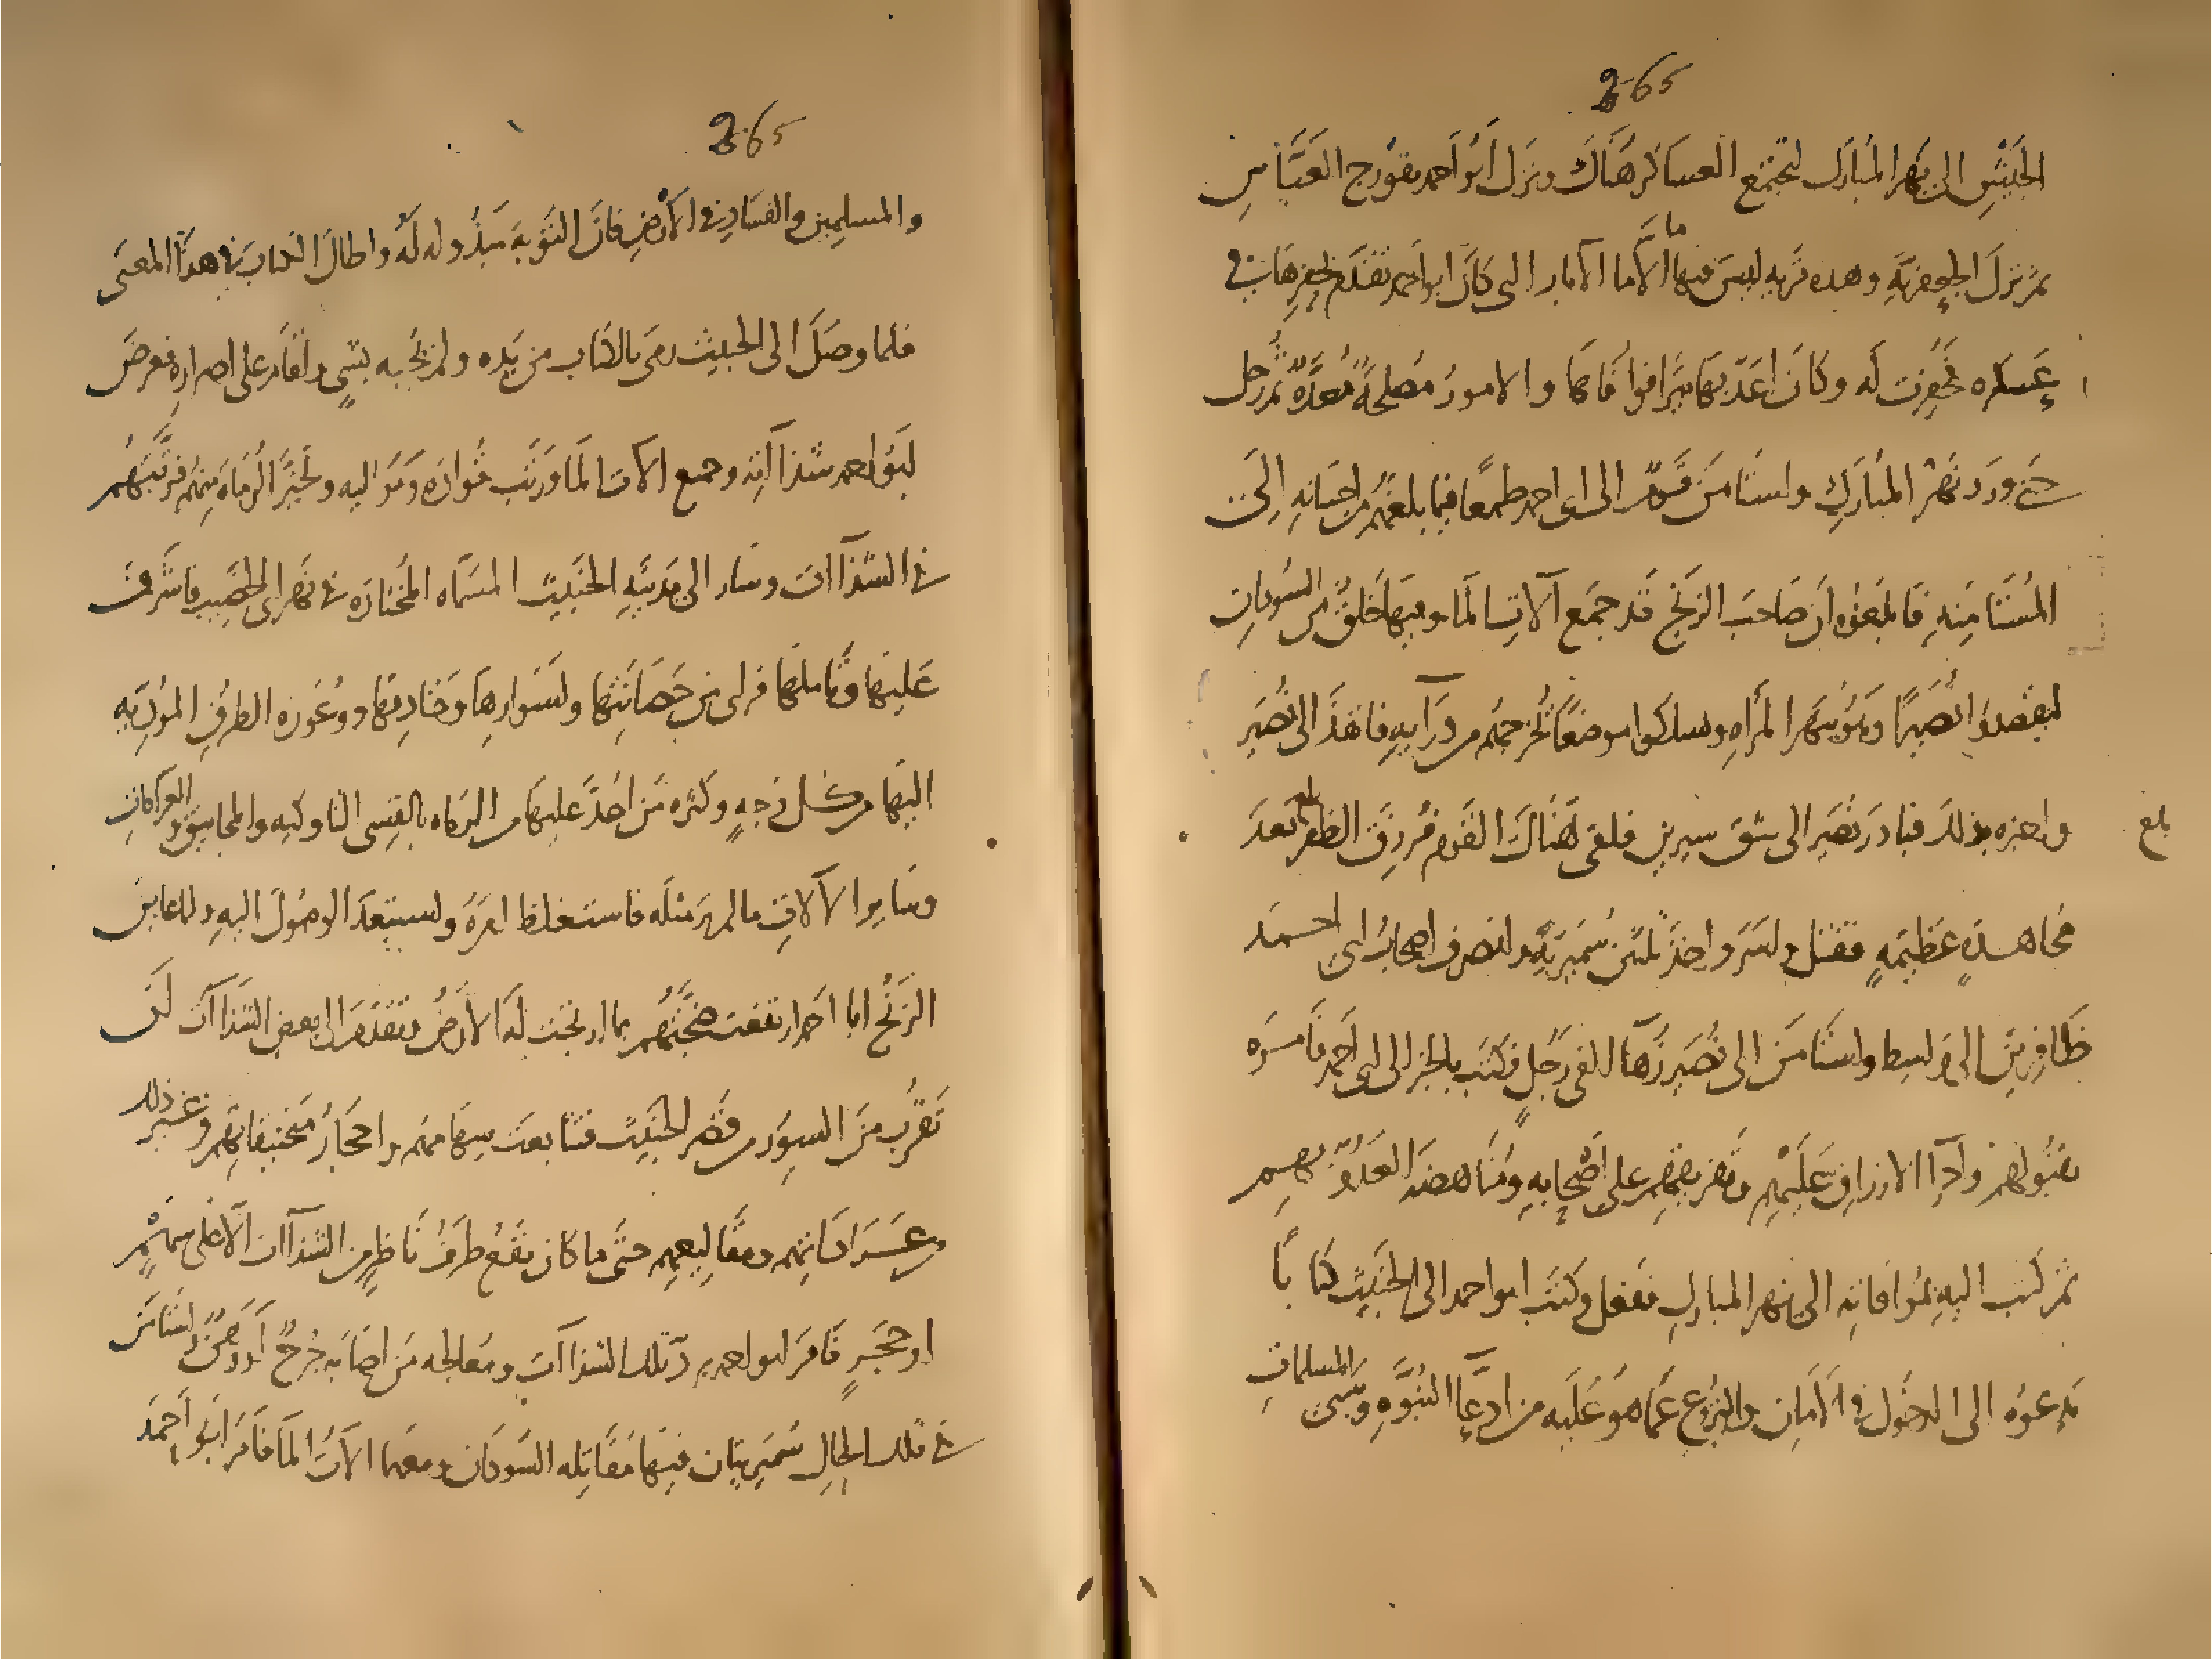 265
الجَيْشِ الى نهر المُبارَك لتجتمع العساكر هناك ونزل أبو أحمد بقورج العَبَّاس
ثم نزل الجعفرية وهذه قرية ليس فيها ماء الا ما الآبار التي كان ابو أحمد تقدم بحفرها في
عسكره فحُفِرت له وكان اعدّ بها ميرًا فوافاها والامور مُصلحة مُعدّة ثم رحل
حتى ورد نهر المبارك واستأمن قوم الى ابى احمد طمعًا فيما بلغهم من احسانه الى
المُستأمنه فابلغوه ان صاحب الزنج قد جمع آلات الما وفيها خلق من السودان
ليقصدوا نُصَيرًا وهو بنهر المرأه ويسلكوا موضعًا يُخرجهم من ورآيه فانفذ الى نُصَير
بلغ
واخبره بذلك فبادر نُصَير الى شق سيرين فلقى هناك القوم فرُزق الظفر بهم بعدَ
مُجاهدةٍ عظيمةٍ فقتل واسر واخذ ثلثين سُميريّة وانصرف اصحاب ابى احمد
ظافرين الى واسط واستأمن الى نُصَير زهآ الفى رجلٍ فكتب بالخبر الى ابى احمد فامره
بقبولهم وادرا الارزاق عليهم وتفريقهم على اصحابه ومُناهضة العدوّ بهم
ثم كتب اليه بموافاته الى نهر المبارك ففعل وكتب ابو احمد الى الخبيث كتابًا
يدعوه الى الدخول في الأمان والنزوع عما هو عليه من ادّعآ النبوّه وسبى المسلمات
265
والمسلمين والفساد في الأرض فان التوبة مبذوله له واطال الكتاب في هذا المعنى
فلما وصل الى الخبيث رمى بالكتاب من يده ولم يُجبه بشىءٍ واقام على اصراره فعرض
ابو احمد شذاآته وجميع الات الما ورتّب قُوّاده ومواليه وتخيّر الرماه منهم فرتّبهم
في الشذاآت وسار الى مدينة الخبيث المسماه المُختاره في نهر ابى الخصيب فاشرف
عليها وتأملها فراى من حصانتها واسوارها وخنادقها ووُعُوره الطرق المودّيه
اليها من كل وجهٍ وكثره من احدّ عليها من الرماه بالقسى الناوكيه والمجانيق والعرادات
وساير الآلات ما لم ير مثله فاستغلظ امره واستبعد الوصول اليه ولما عاين
الزنج ابا احمد ارتفعت ضجّتهم بما ارتجّت له الأرض وتقدّم الى بعض الشذاآت ان
تقرُب من السور من قصر الخبيث فتتابعت سهامهم واحجار منجنيقاتهم وغير ذلك
من عرّاداتهم ومقاليعهم حتّى ما كان يقع طرف ناظرٍ من الشذاآت الا على سهمٍ
او حجرٍ فامر ابو احمد بردّ تلك الشذاآت ومعالجه من اصابه جُرح او وهن واستأمن
في تلك الحال سُميريتان فيها مُقاتِله السودان ومعهما الات الما فامر ابو احمد